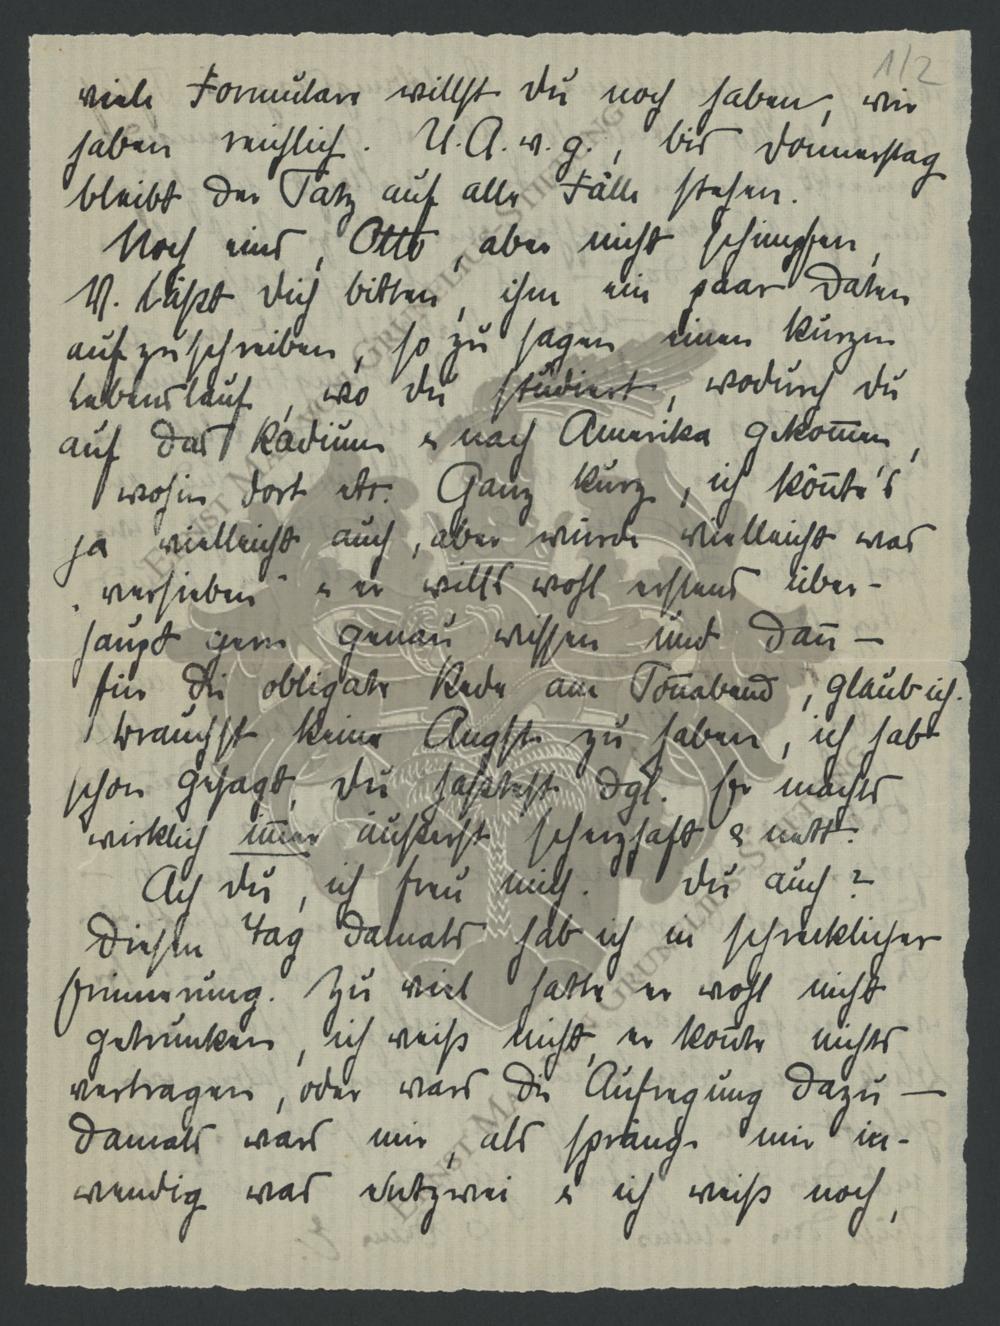 1/2
viele Formulare willst Du noch haben, wir
haben reichlich. U.A.w.g., bis Donnerstag
bleibt der Satz auf alle Fälle stehen.
Noch eins, Otto, aber nicht schimpfen,
V. läßt Dich bitten, ihm ein paar Daten
aufzuschreiben, so zu sagen einen kurzen
Lebenslauf, wo Du studiert, wodurch Du
auf das Radium & nach Amerika gekom̄en,
wohin dort etc. Ganz kurz, ich kön̄te's
ja vielleicht auch, aber würde vielleicht was
„versieben" & er wills wohl erstens über-
haupt gern genau wissen und dan̄ –
für die obligate Rede am Son̄abend, glaub ich.
brauchst keine Angst zu haben, ich hab
schon gesagt, Du haßtest dgl. Er machts
wirklich im̄er äußerst scherzhaft & nett.
Ach Du, ich freu mich. Du auch?
Diesen Tag damals hab ich in schrecklicher
Erinnerung. Zu viel hatte er wohl nicht
getrunken, ich weiß nicht, er kon̄te nichts
vertragen, oder wars die Aufregung dazu –
damals wars mir, als spränge mir in-
wendig was entzwei & ich weiß noch,
ERNST MAX VON GRUNELIUS-STIFTUNG
ERNST MAX VON GRUNELIUS-STIFTUNG